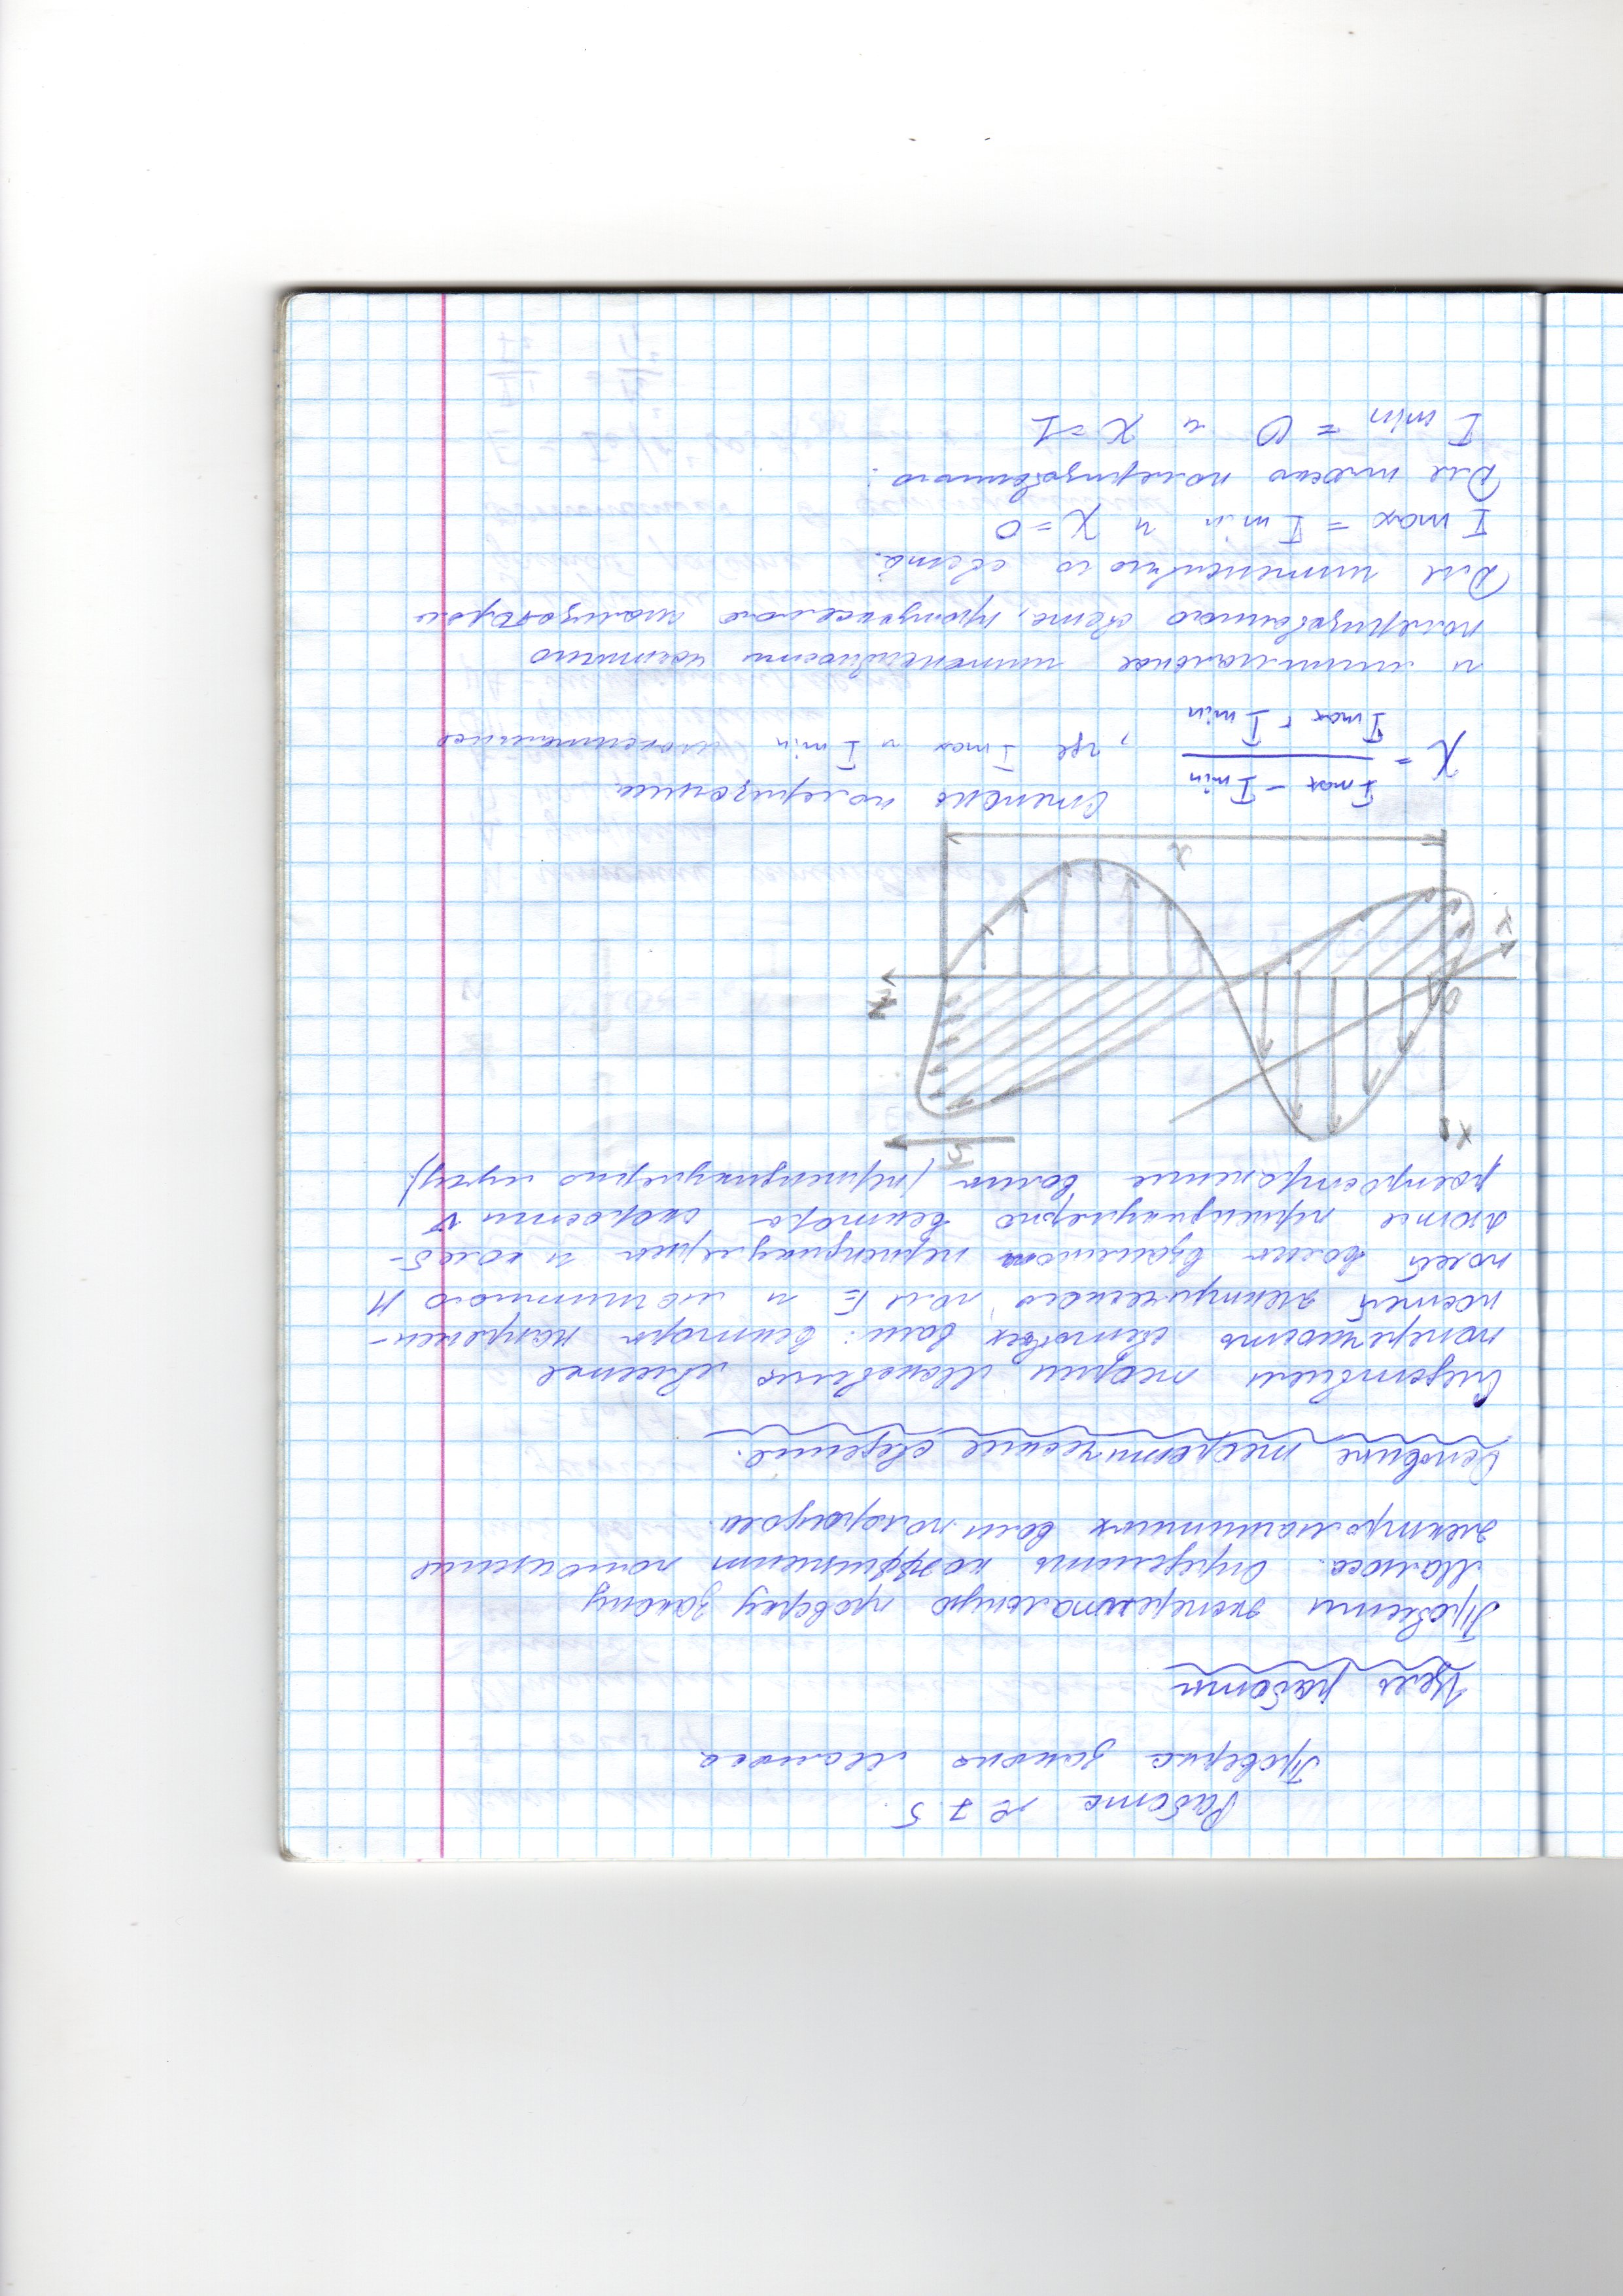 Работа № 7.5.
Проверка закона Малюса
Цель работы
Провести эксперентальную проверку закону
Малюса. Определить коэффициент поглощения
электромагнитных волн поляроидом.
Основные теоретические сведения.
Следствием теории Максвелла является
поперечность световых волн: векторы напряжен-
ностей электрического поля E и магнитного H
полей волны взаимно перпендикулярны и колеб-
лются перпендикулярно вектора скорости v
распространение волны (перпендикулярно лучу).
x
z
λ
Степень поляризации
χ = (I max - I min) / (I max + I min) , где I max и I min максимальная
и минимальная интенсивности частично
поляризованного света, пропускаемая анализатором
Для интенсивного света.
I max = I min и χ = 0
Для плоско поляризованного:
I min = 0 и χ = 1